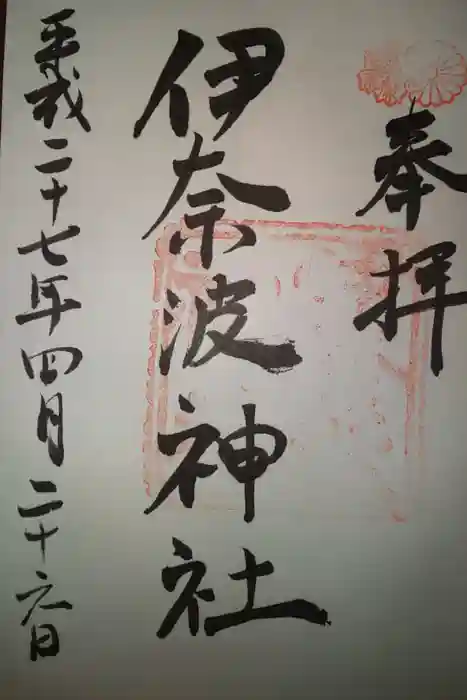 奉拝
伊奈波神社
平成二十七年四月二十六日